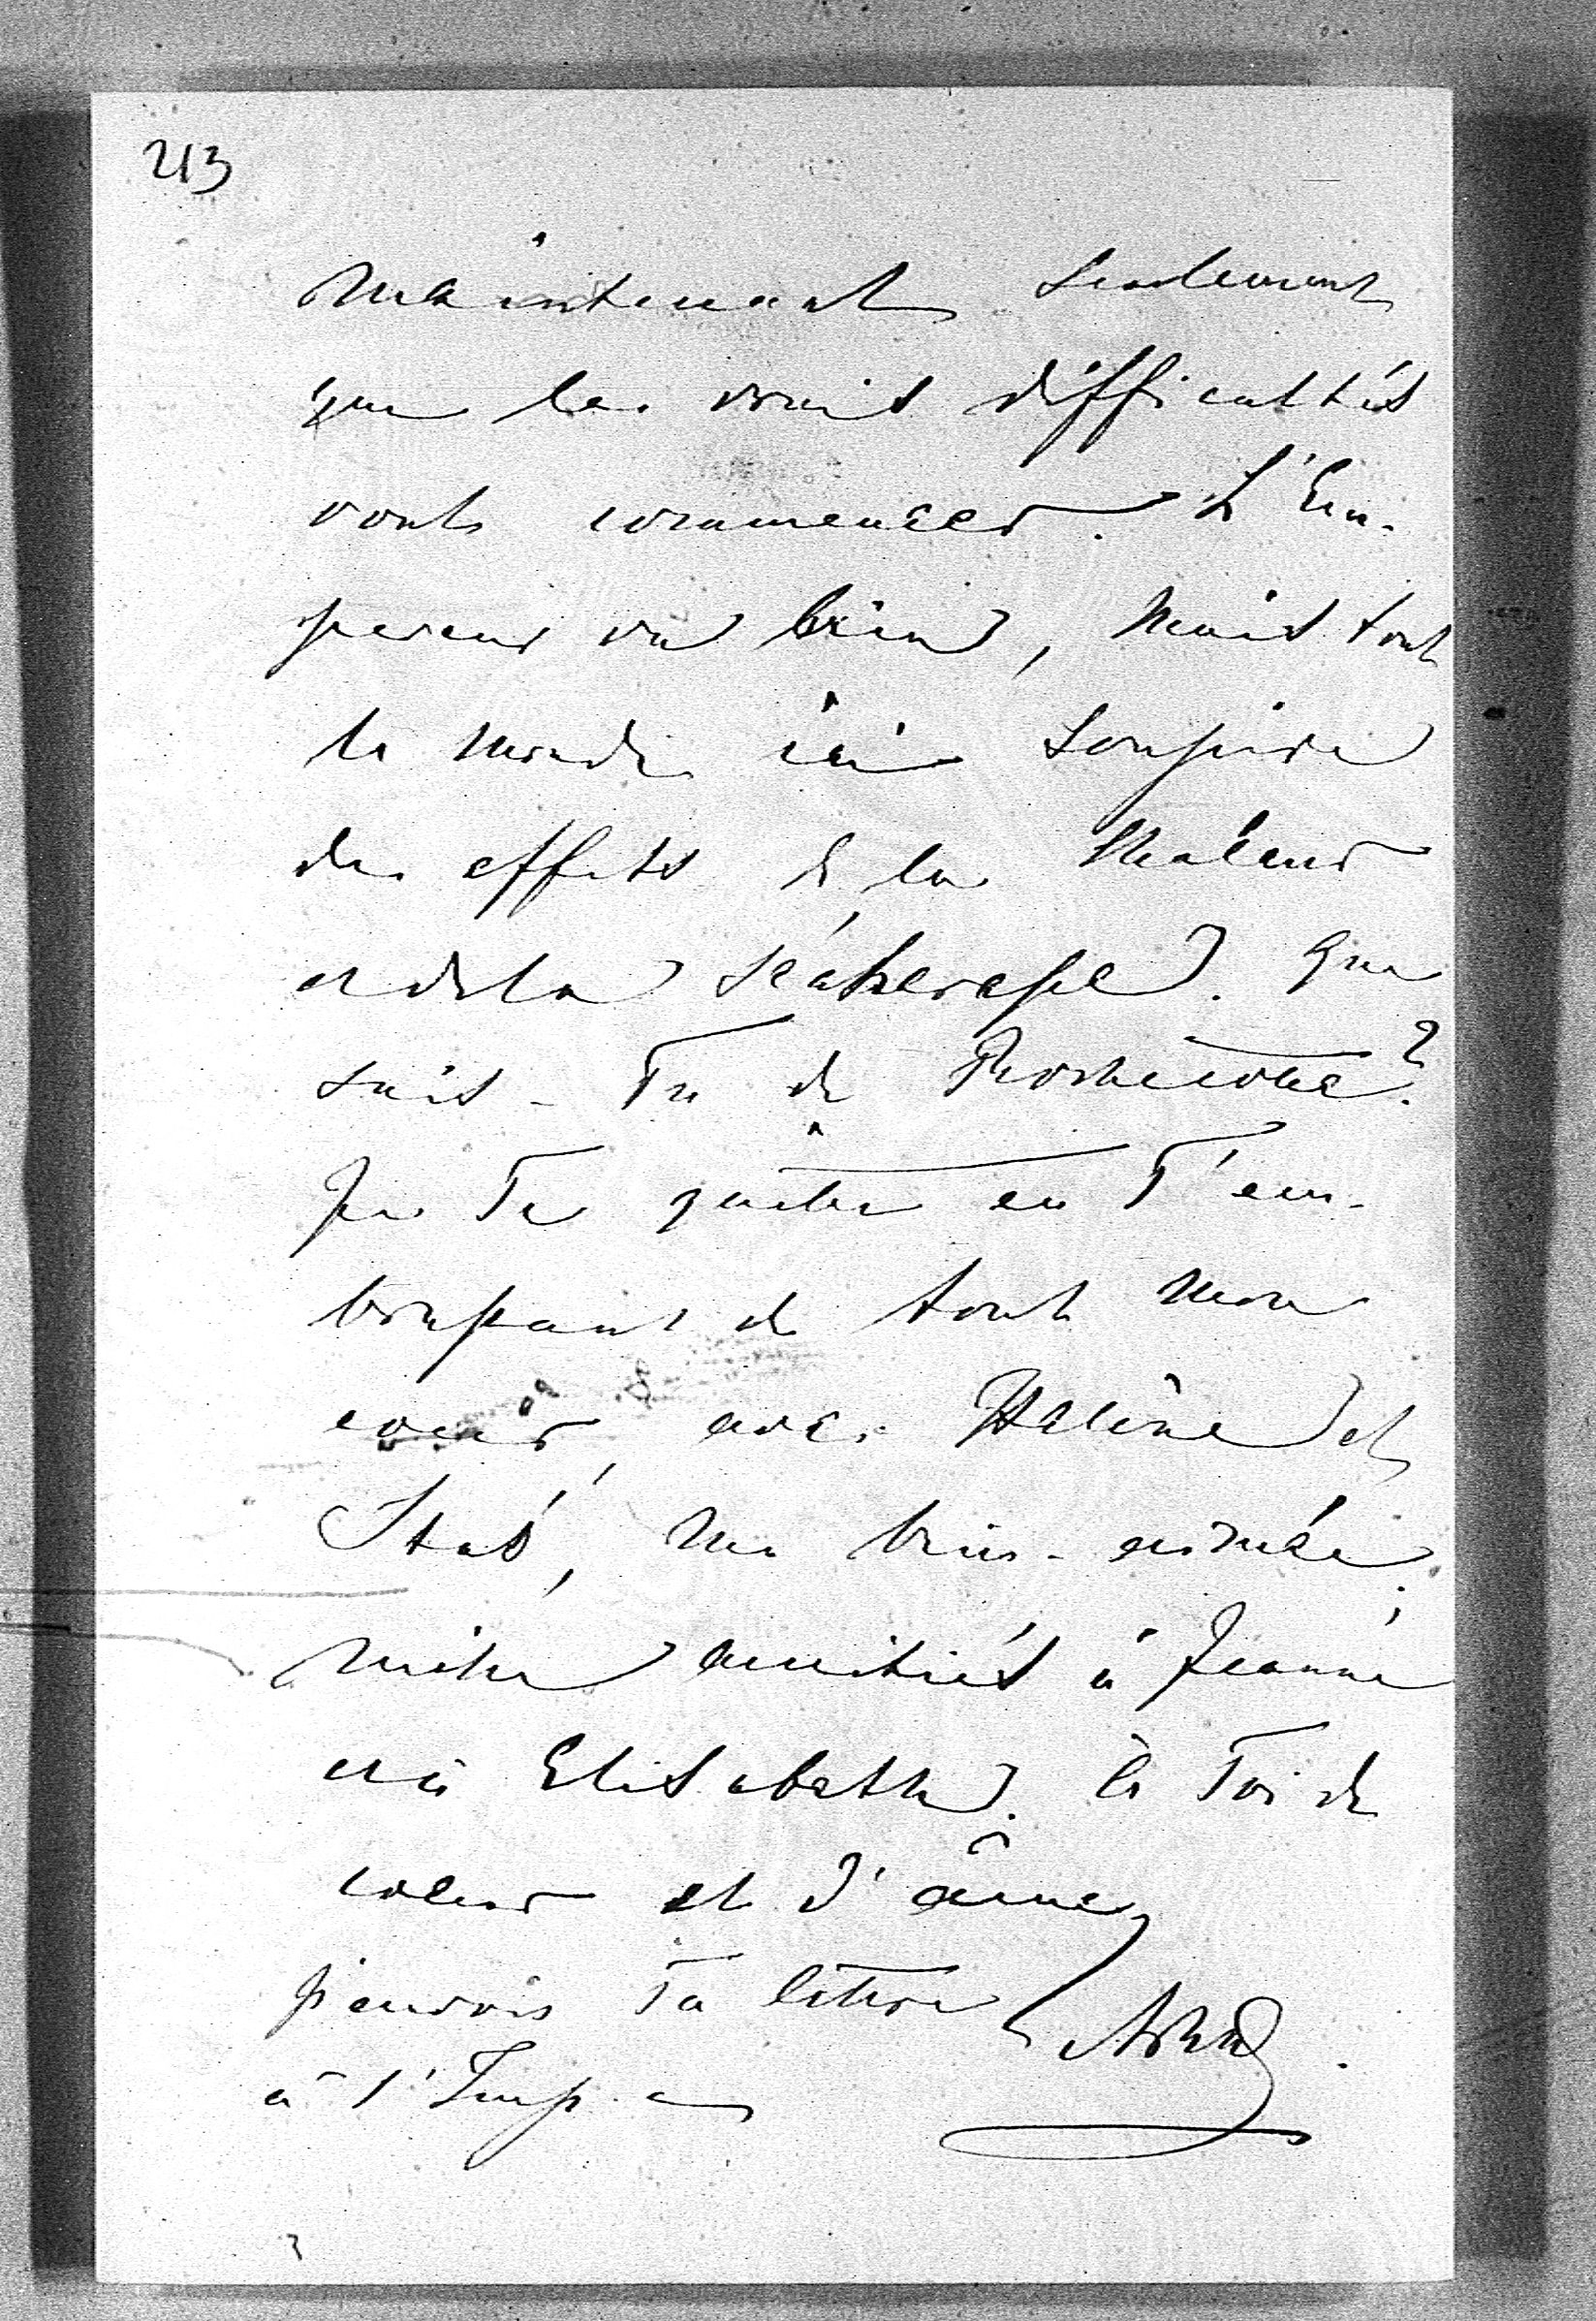 213
maintenant seulement
que les vrais difficultés
vont commencer. L'Em-
pereur va bien, mais tout
le monde ici soupire
des effets de la chaleur
et de la sécheresse. Que
sais-Tu de ?
Je Te quitte en T'em-
brassant de tout mon
coeur, avec Hélène et
Stas, ma bien-aimée;
mille amitiés à Jeanne
et à Elisabeth. à Toi de
coeur et d'âme
j'envois Ta lettre
à l'Imp.